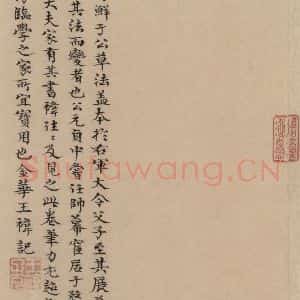 鮮于公草法蓋本於右軍大令父子至其展
其法而變者也公元貞中嘗任師幕官居于
大夫家有其書禕往々及見之此卷筆力
臨學之家所宜寶用也金華王禕記
Shufawang.CN